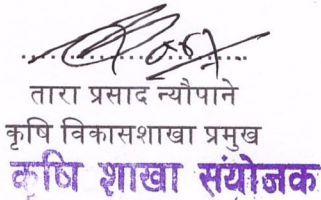 तारा प्रसाद न्यौपाने
कृषि विकासशाखा प्रमुख
कृषि शाखा संयोजक